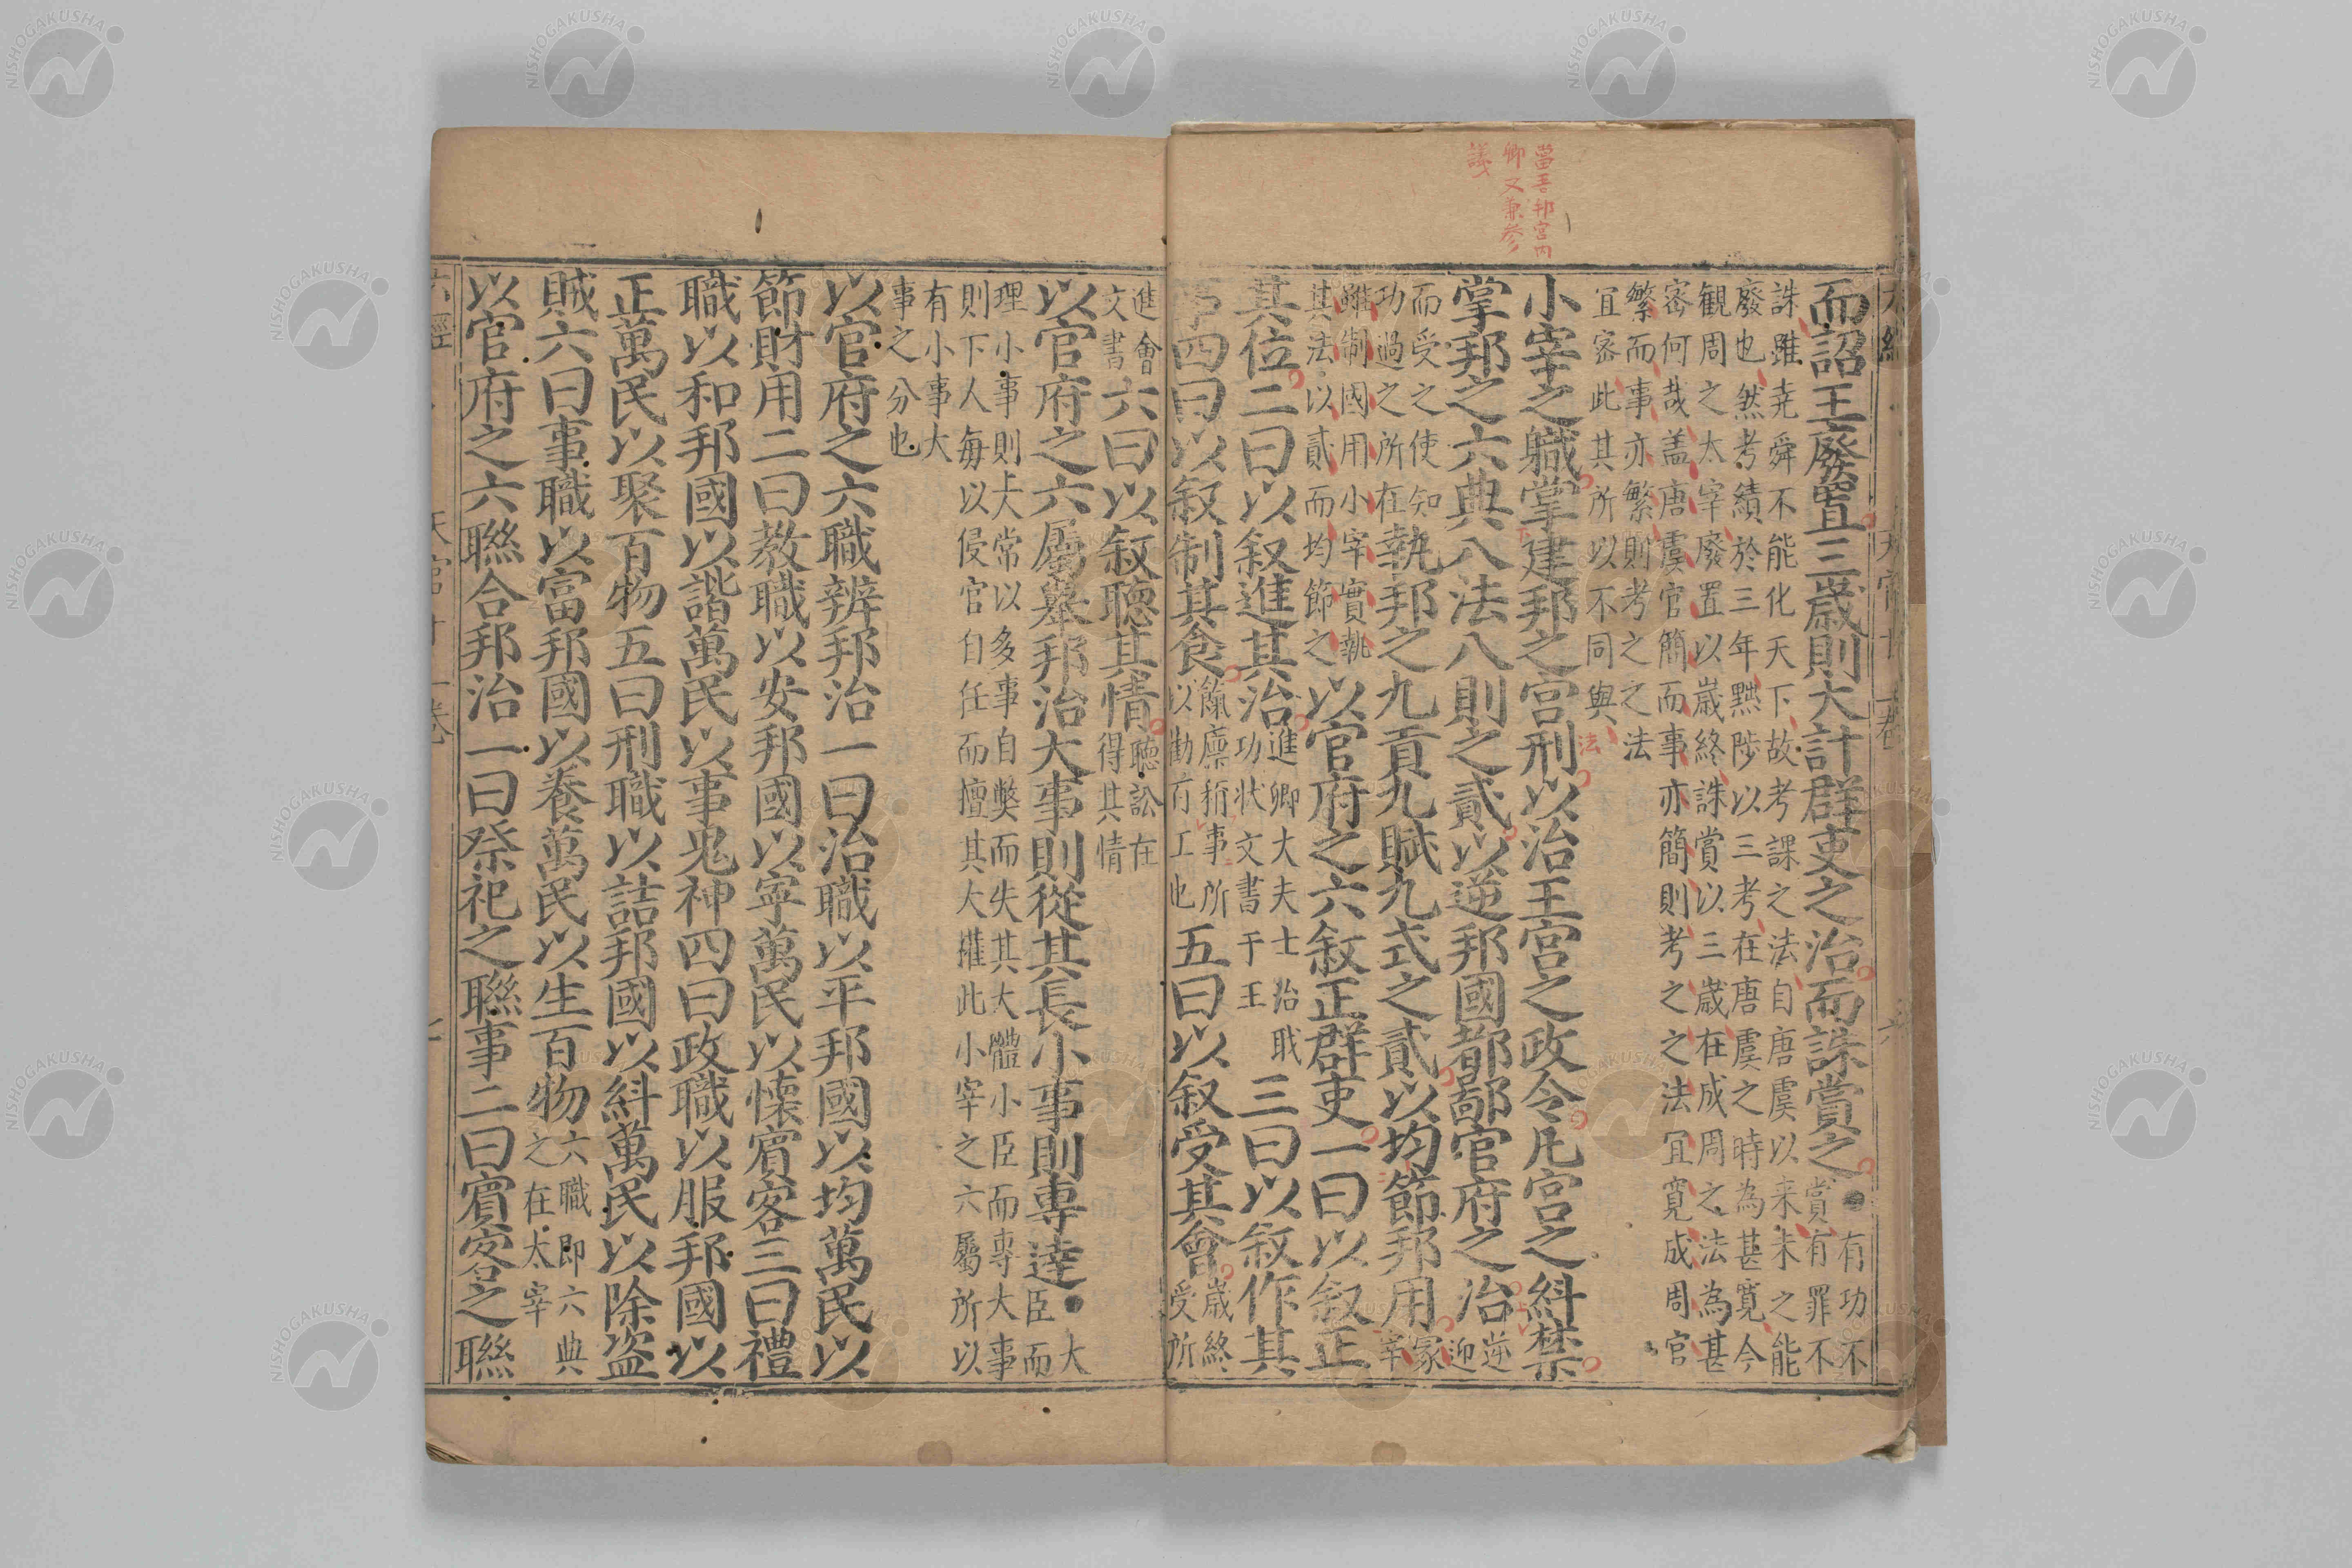 六經
天官
一卷
六
當吾邦宮内
卿又兼参
議
而詔王廢置三歲則大計群吏之治而誅賞之●有功不
賞有罪不
誅雖堯舜不能化天下故考課之法自唐虞以来未之能
廢也然考績於三年黜陟以三考在唐虞之時為甚寛今
観周之太宰廢置以歳終誅賞以三歳在成周之法為甚
宻何哉盖唐虞官簡而事亦簡則考之之法宜寛成周官
繁而事亦繁則考之之法
宜宻此其所以不同與
法
小宰之職掌建邦之宫刑以治王宫之政令凡宫之糾禁
掌邦之六典八法八則之貳以逆邦國都鄙官府之治逆
迎
而受之使知
功過之所在執邦之九貢九賦九式之貳以均節邦用冢
宰
雖制國用小宰實執
其法以貳而均節之以官府之六叙正群吏一曰以叙正
其位二曰以叙進其治進卿大夫士治職
功状文書于王三曰以叙作其
事四曰以叙制其食餼廩稍事所
以勸有工也五曰以叙受其會歳終
受所
進會
文書六曰以叙聽其情聽訟在
得其情
以官府之六屬舉邦治大事則從其長小事則專達●大
臣而
理小事則上大常以多事自獘而失其大體小臣而専大事
則下人毎以侵官自任而擅其大權此小宰之六屬所以
有小事大
事之分也
以官府之六職辨邦治一曰治職以平邦國以均萬民以
節財用二曰教職以安邦國以寧萬民以懐賓客三曰禮
職以和邦國以諧萬民以事鬼神四曰政職以服邦國以
正萬民以聚百物五曰刑職以詰邦國以糾萬民以除盗
賊六曰事職以富邦國以養萬民以生百物六職即六典
之在太宰
以官府之六聯合邦治一曰祭祀之聯事二曰賓客之聯
六經
天官
一卷
七
NISHOGAKUSHA